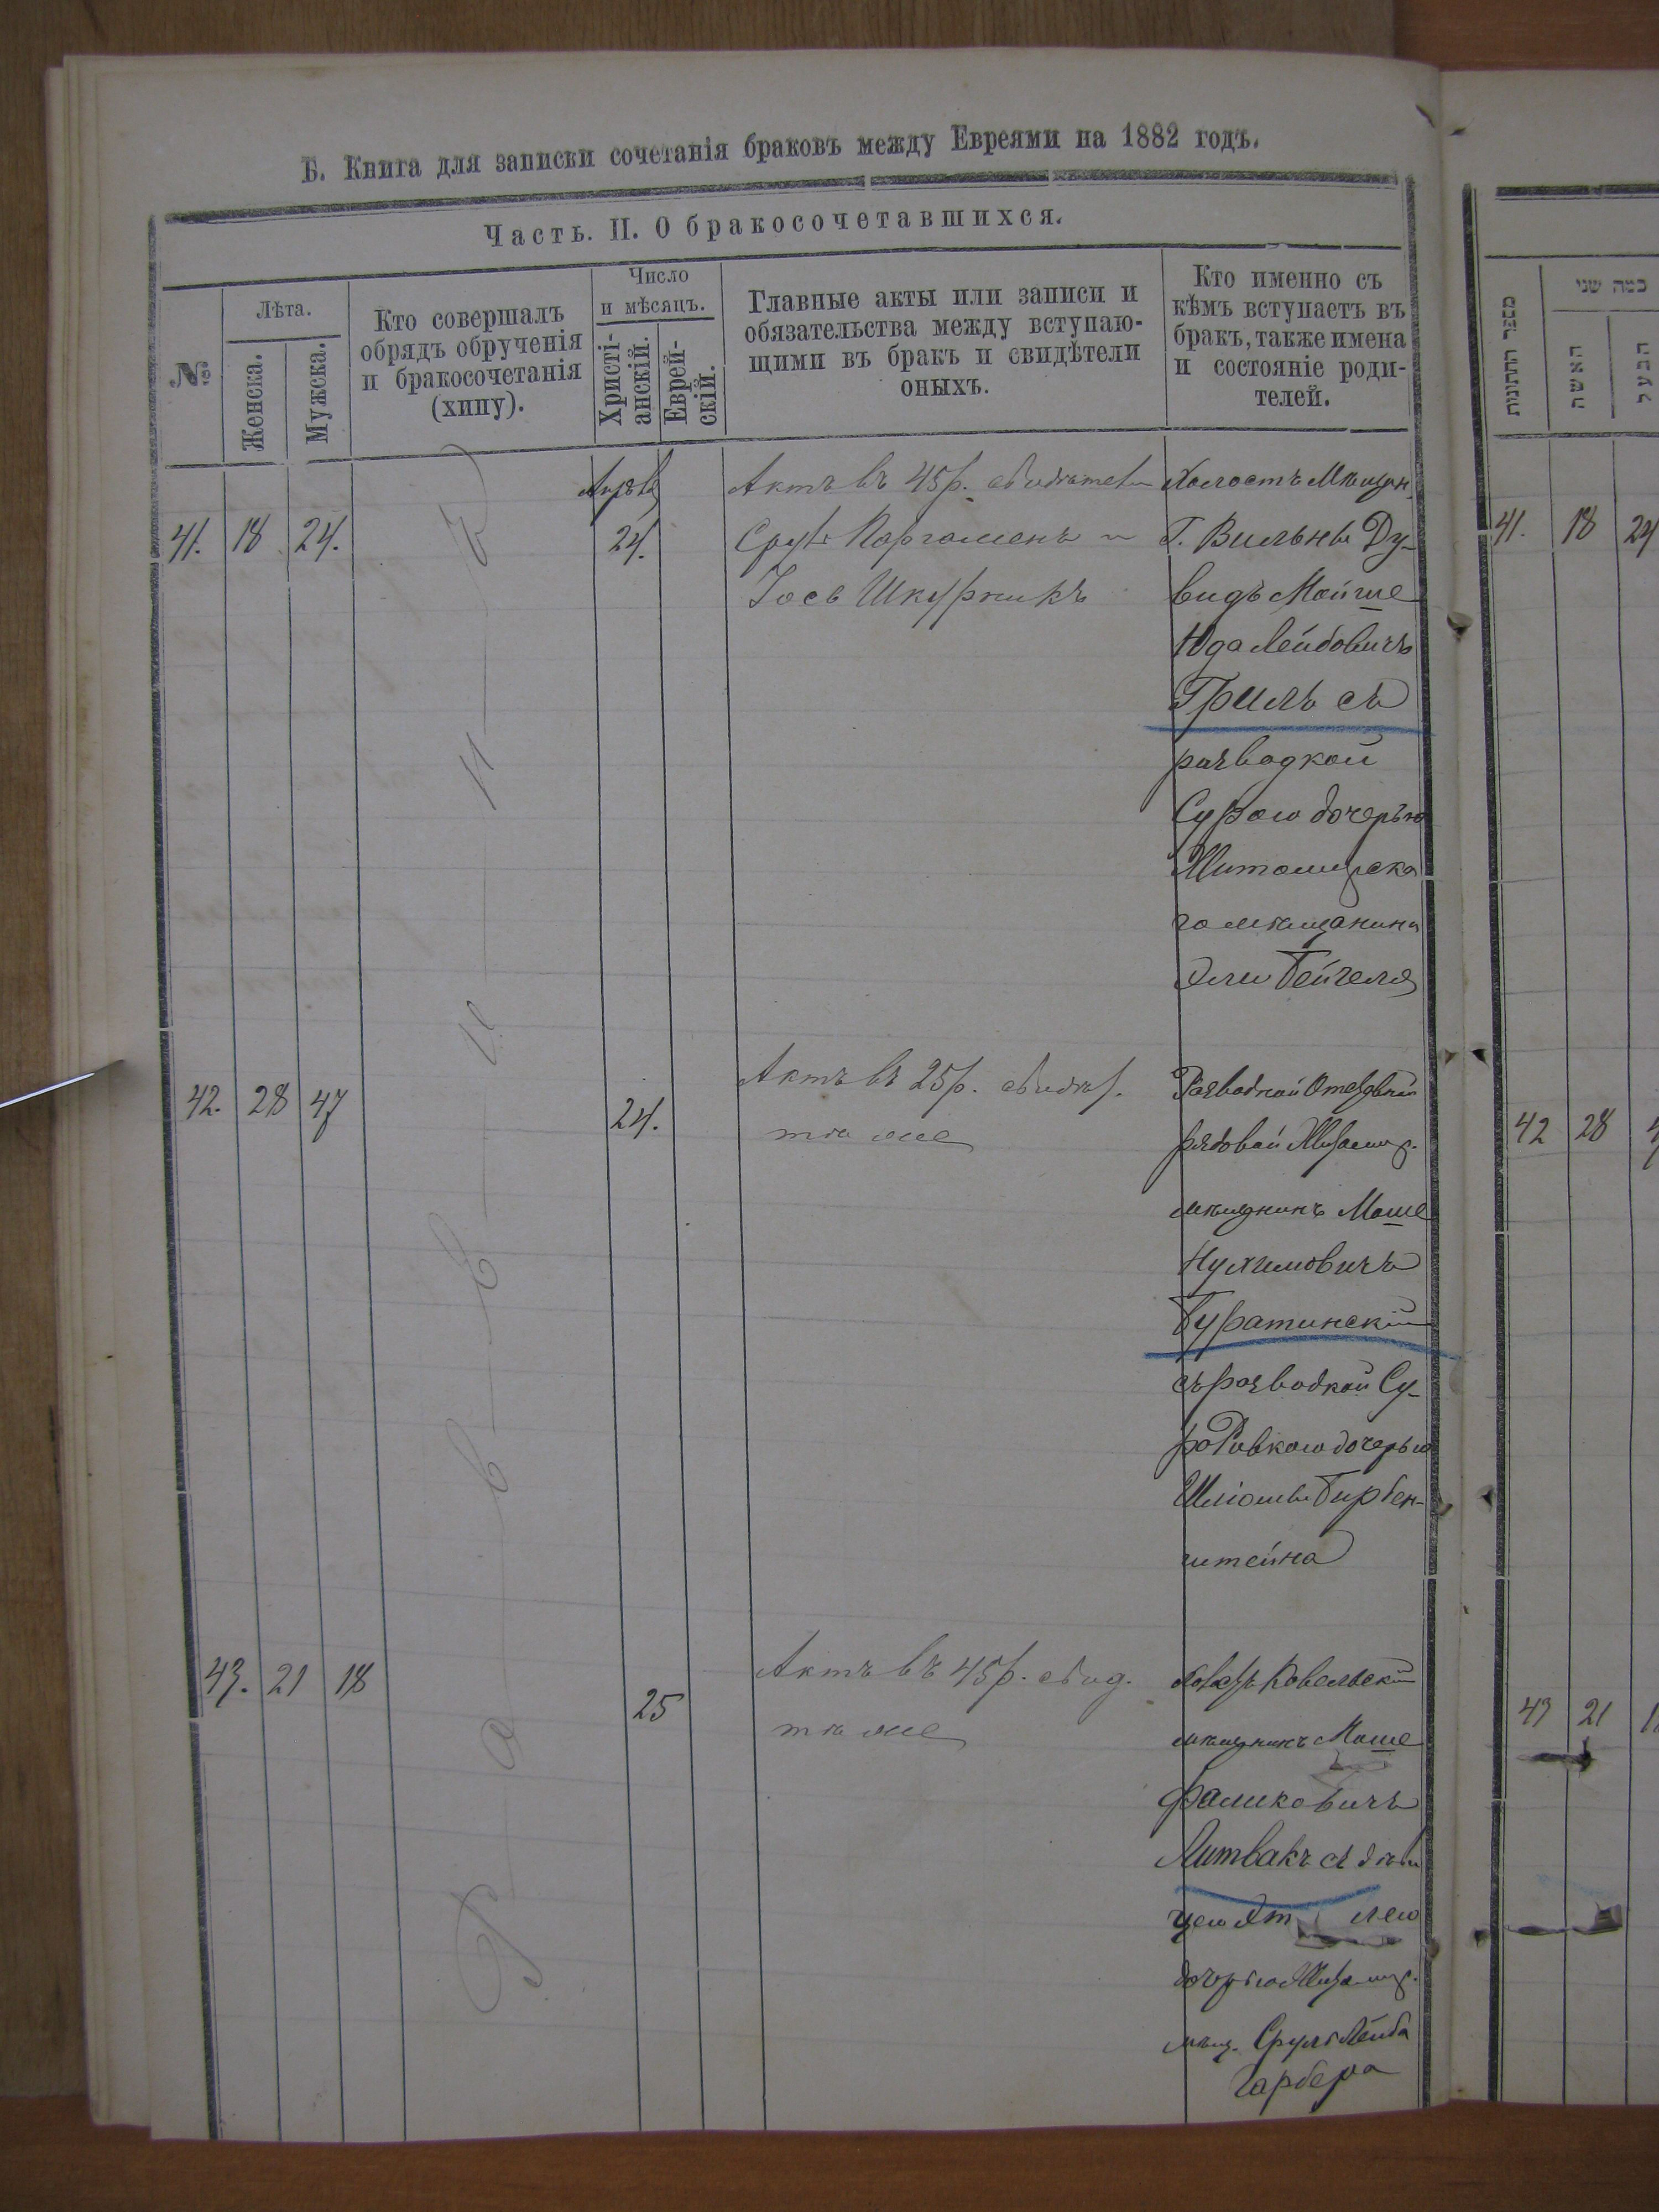 Б. Книга для записки сочетанія браковъ между Евреями на 1882 годъ.
Часть. II. О бракосочетавшихся.
№
Лѣта.
Женска.
Мужска.
Кто совершалъ
обрядъ обрученія
и бракосочетанія
(хипу).
Число
и мѣсяцъ.
Христі-
анскій.
Еврей-
скій.
Главные акты или записи и
обязательства между вступаю-
щими въ бракъ и свидѣтели
оныхъ.
Кто именно съ
кѣмъ вступаетъ въ
бракъ, также имена
и состояніе роди-
телей.
41. 18 24.
24.
Актъ въ 45 р.
Пергаменъ и
Іось Шкурникъ
Холостъ Мѣщан.
Г. Вильны Ду-
видъ Мойше
Юда Лейбовичъ
Гриль съ
разводкой
Сурою дочерью
Житомирска
го мѣщанина
Эли Бейгеля
42. 28 47
24.
Актъ въ 25 р.
тѣ же
Разводной
рядовой
мѣщнинъ Моше
Нухимовичъ
Буратинскій
съ разводкой Су-
ро Ривкою дочерью
Шліомы Бирбен-
штейна
43. 21 18
25
Актъ въ 45 р. свид.
тѣ же
Ковельскій
мѣщнинъ Моше
Фаликовичъ
Литвакъ съ дѣви
цею
дочерью
мѣщ. Сруль Лейба
Гарбера
מספר החתונות
כמה שני
האשה
הבעל
41. 18 24
42 28
43 21